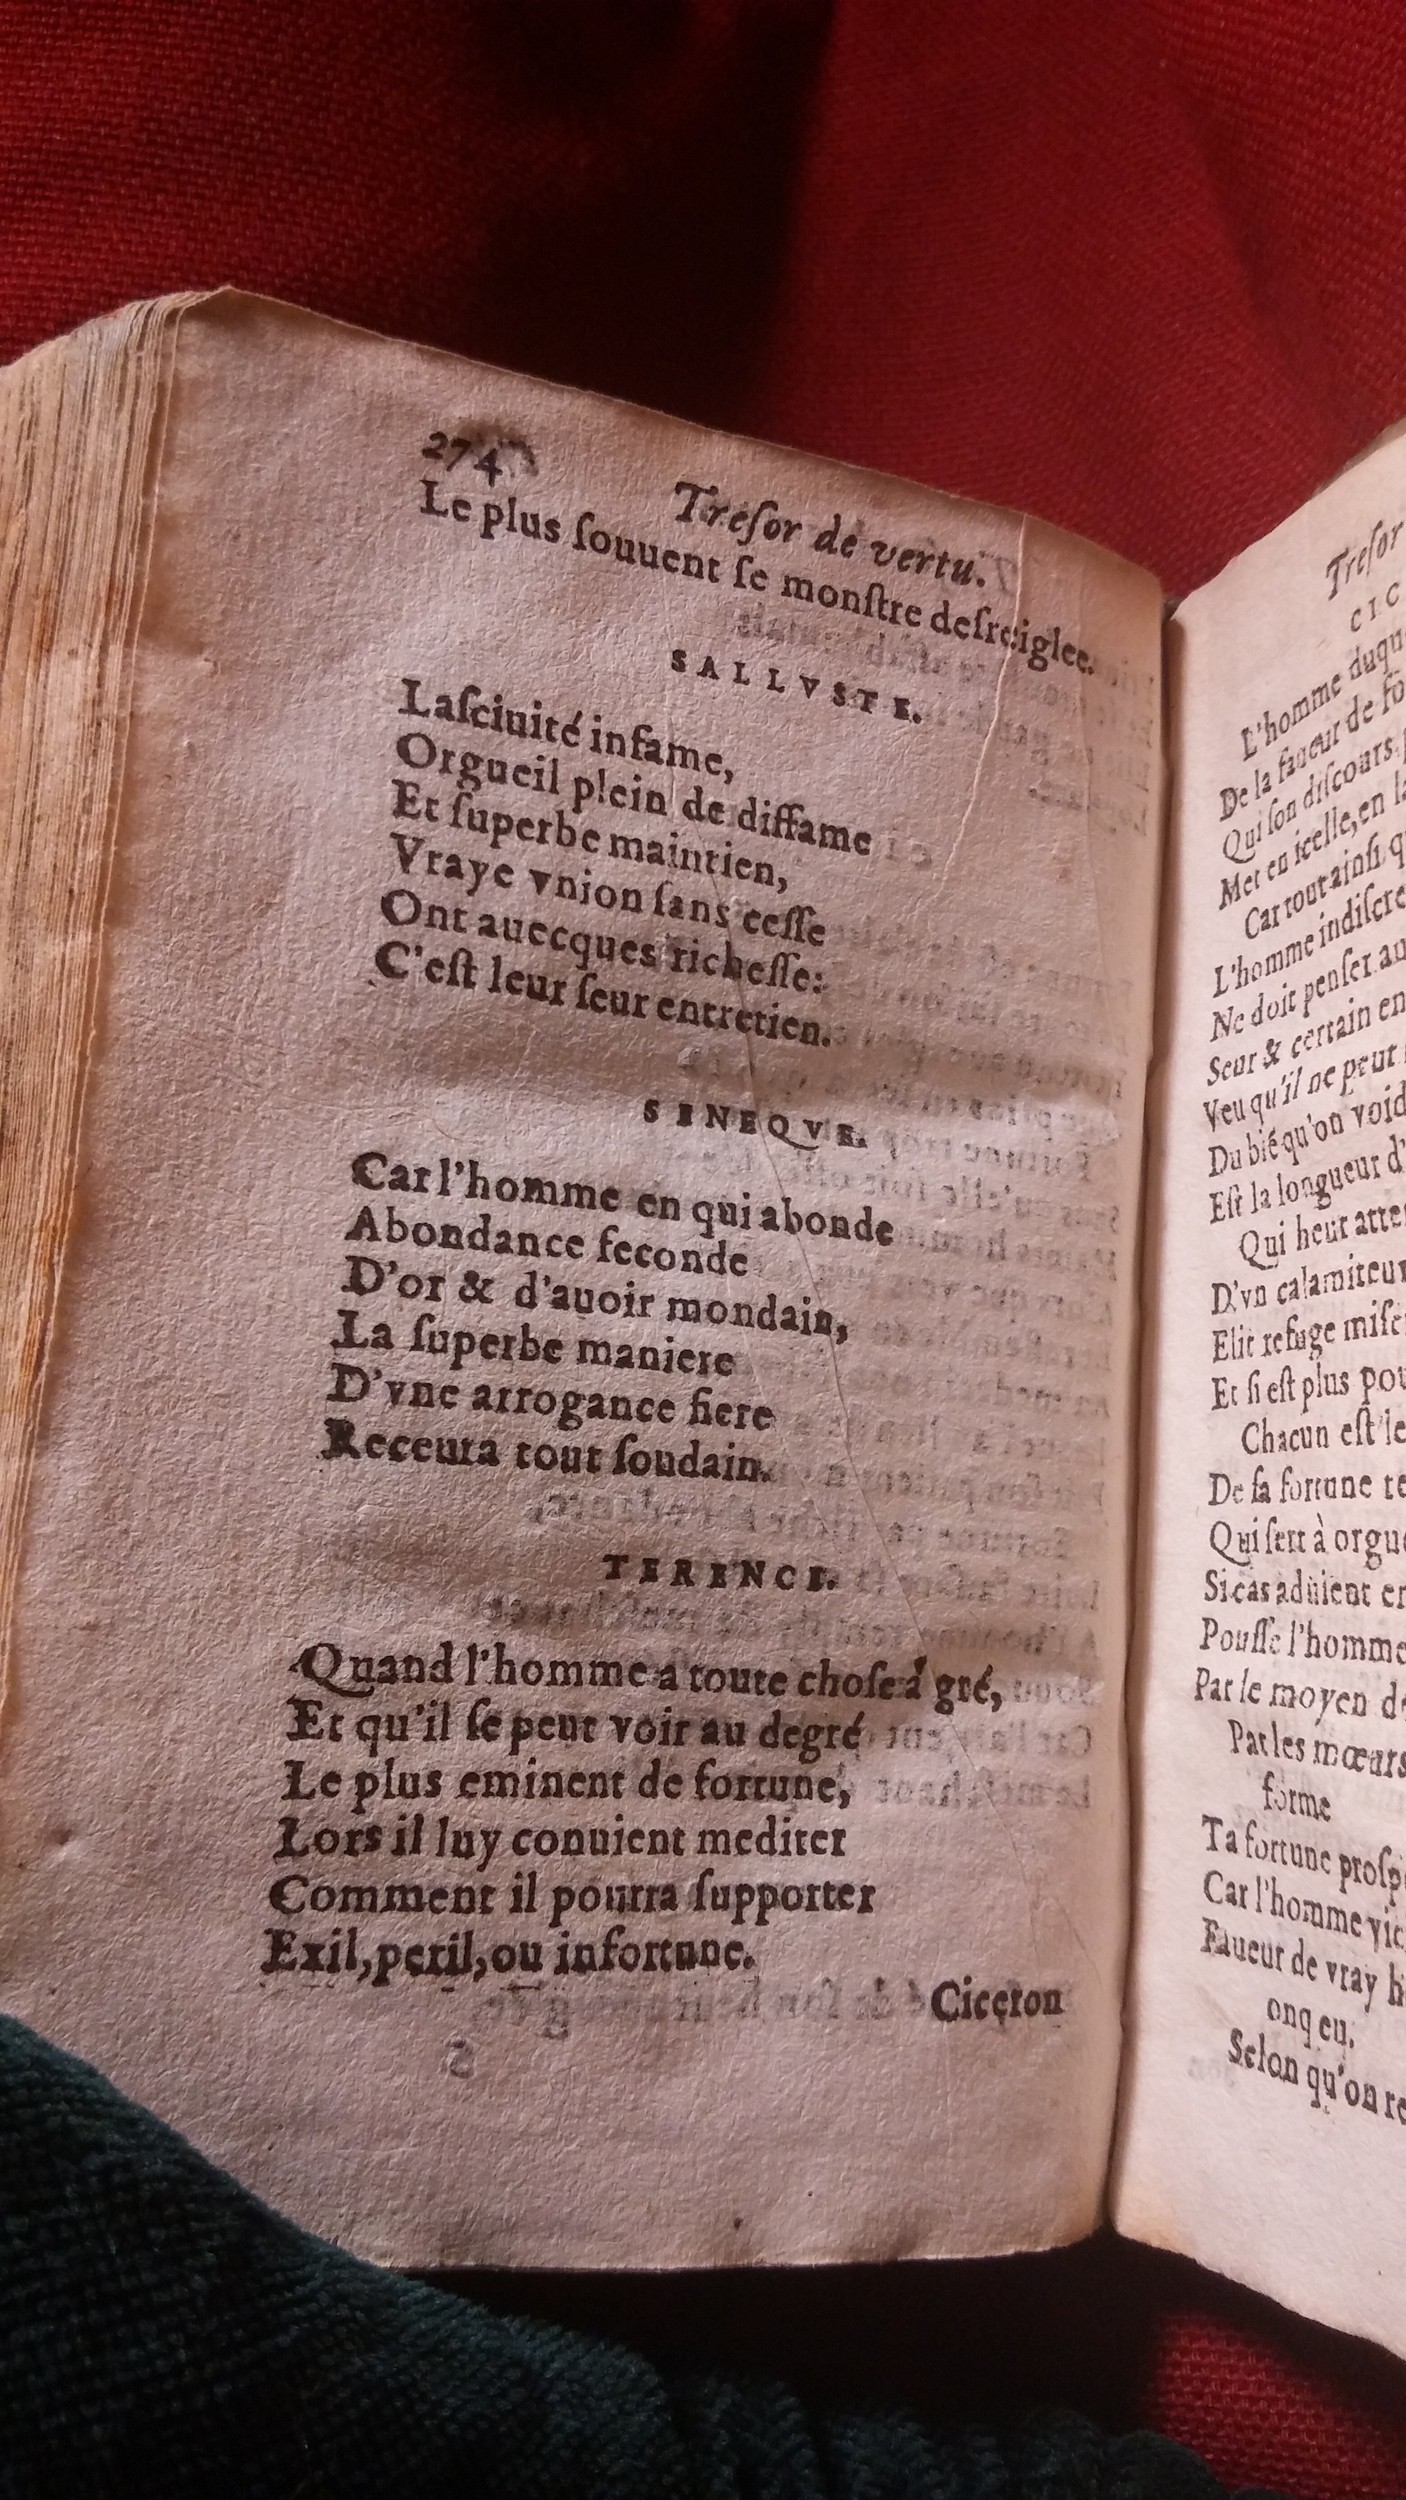 274
Treſor de vertu.
Le plus ſouuent ſe monſtre deſreiglee.
SALLVSTE.
Laſciuité infame,
Orgueil plein de diffame
Et ſuperbe maintien,
Vraye vnion ſans ceſſe
Ont auecques richeſſe:
C'eſt leur ſeur entretien.
SENEQVE.
Car l'homme en qui abonde
Abondance feconde
D'or & d'auoir mondain,
La ſuperbe maniere
D'vne arrogance fiere
Receura tout ſoudain.
TERENCE.
Quand l'homme a toute choſe à gré,
Et qu'il ſe peut voir au degré
Le plus eminent de fortune,
Lors il luy conuient mediter
Comment il pourra ſupporter
Exil, peril, ou infortune.
Ciceron
Treſor
CIC
L'homme duqu
De la faueur de fo
Qui ſon diſcours,
Met en icelle, en l
Car tout ainſi q
L'homme indiſcre
Ne doit penſer au
Seur & certain en
Veu qu'il ne peut
Du bié qu'on void
Eſt la longueur d'
Qui heur atte
D'vn calamiteu
Elit refuge miſe
Et ſi eſt plus pou
Chacun eſt le
De ſa fortune te
Qui ſert à orgue
Si cas aduient en
Pouſſe l'homme
Par le moyen de
Par les mœurs
forme
Ta fortune proſp
Car l'homme vic
Faueur de vray h
onq eu.
Selon qu'on re